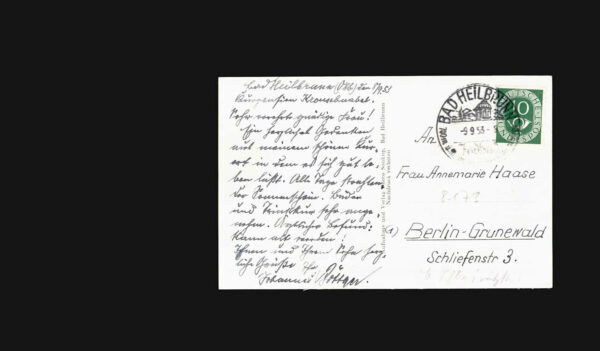 Bad Heilbrunn (Obb) den 8/9.53
Kurpension Kronschnabel.
Sehr verehrte gnädige Frau!
Ein herzliches Gedenken
aus meinem schönen Kur-
ort in dem es sich gut le-
ben läßt. Alle Tage strahlen-
der Sonnenschein. Bäder
und Trinkkur sehr ange-
nehm. Ärztlicher Befund:
kann alt werden!
Ihnen und Ihrem Sohn herz-
liche Grüße Ihr
Johannes Böttger.
Bad Heilbrunn
Nachdruck verboten
BAD HEILBRUNN
-9.9.53-
DEUTSCHE
10
An
Frau Annemarie Haase
(1) Berlin-Grunewald
Schliefenstr 3.